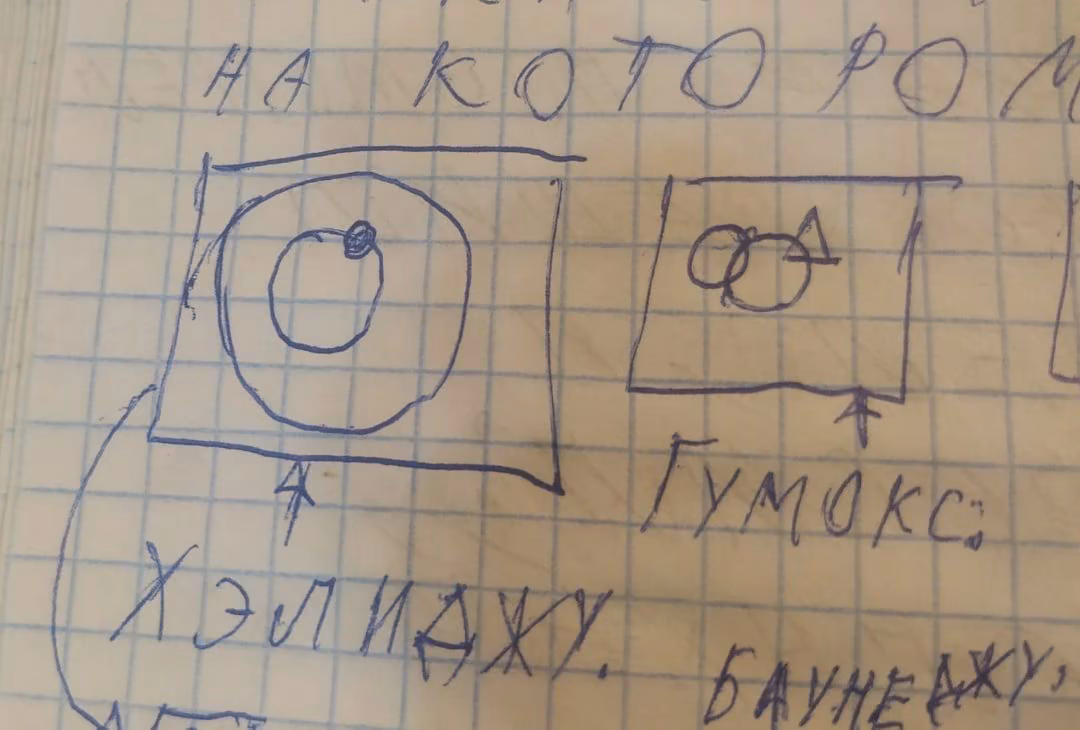 НА КОТОРОМ
ГУМОКС.
ХЭЛИДЖУ.
БАУНЕДЖУ,